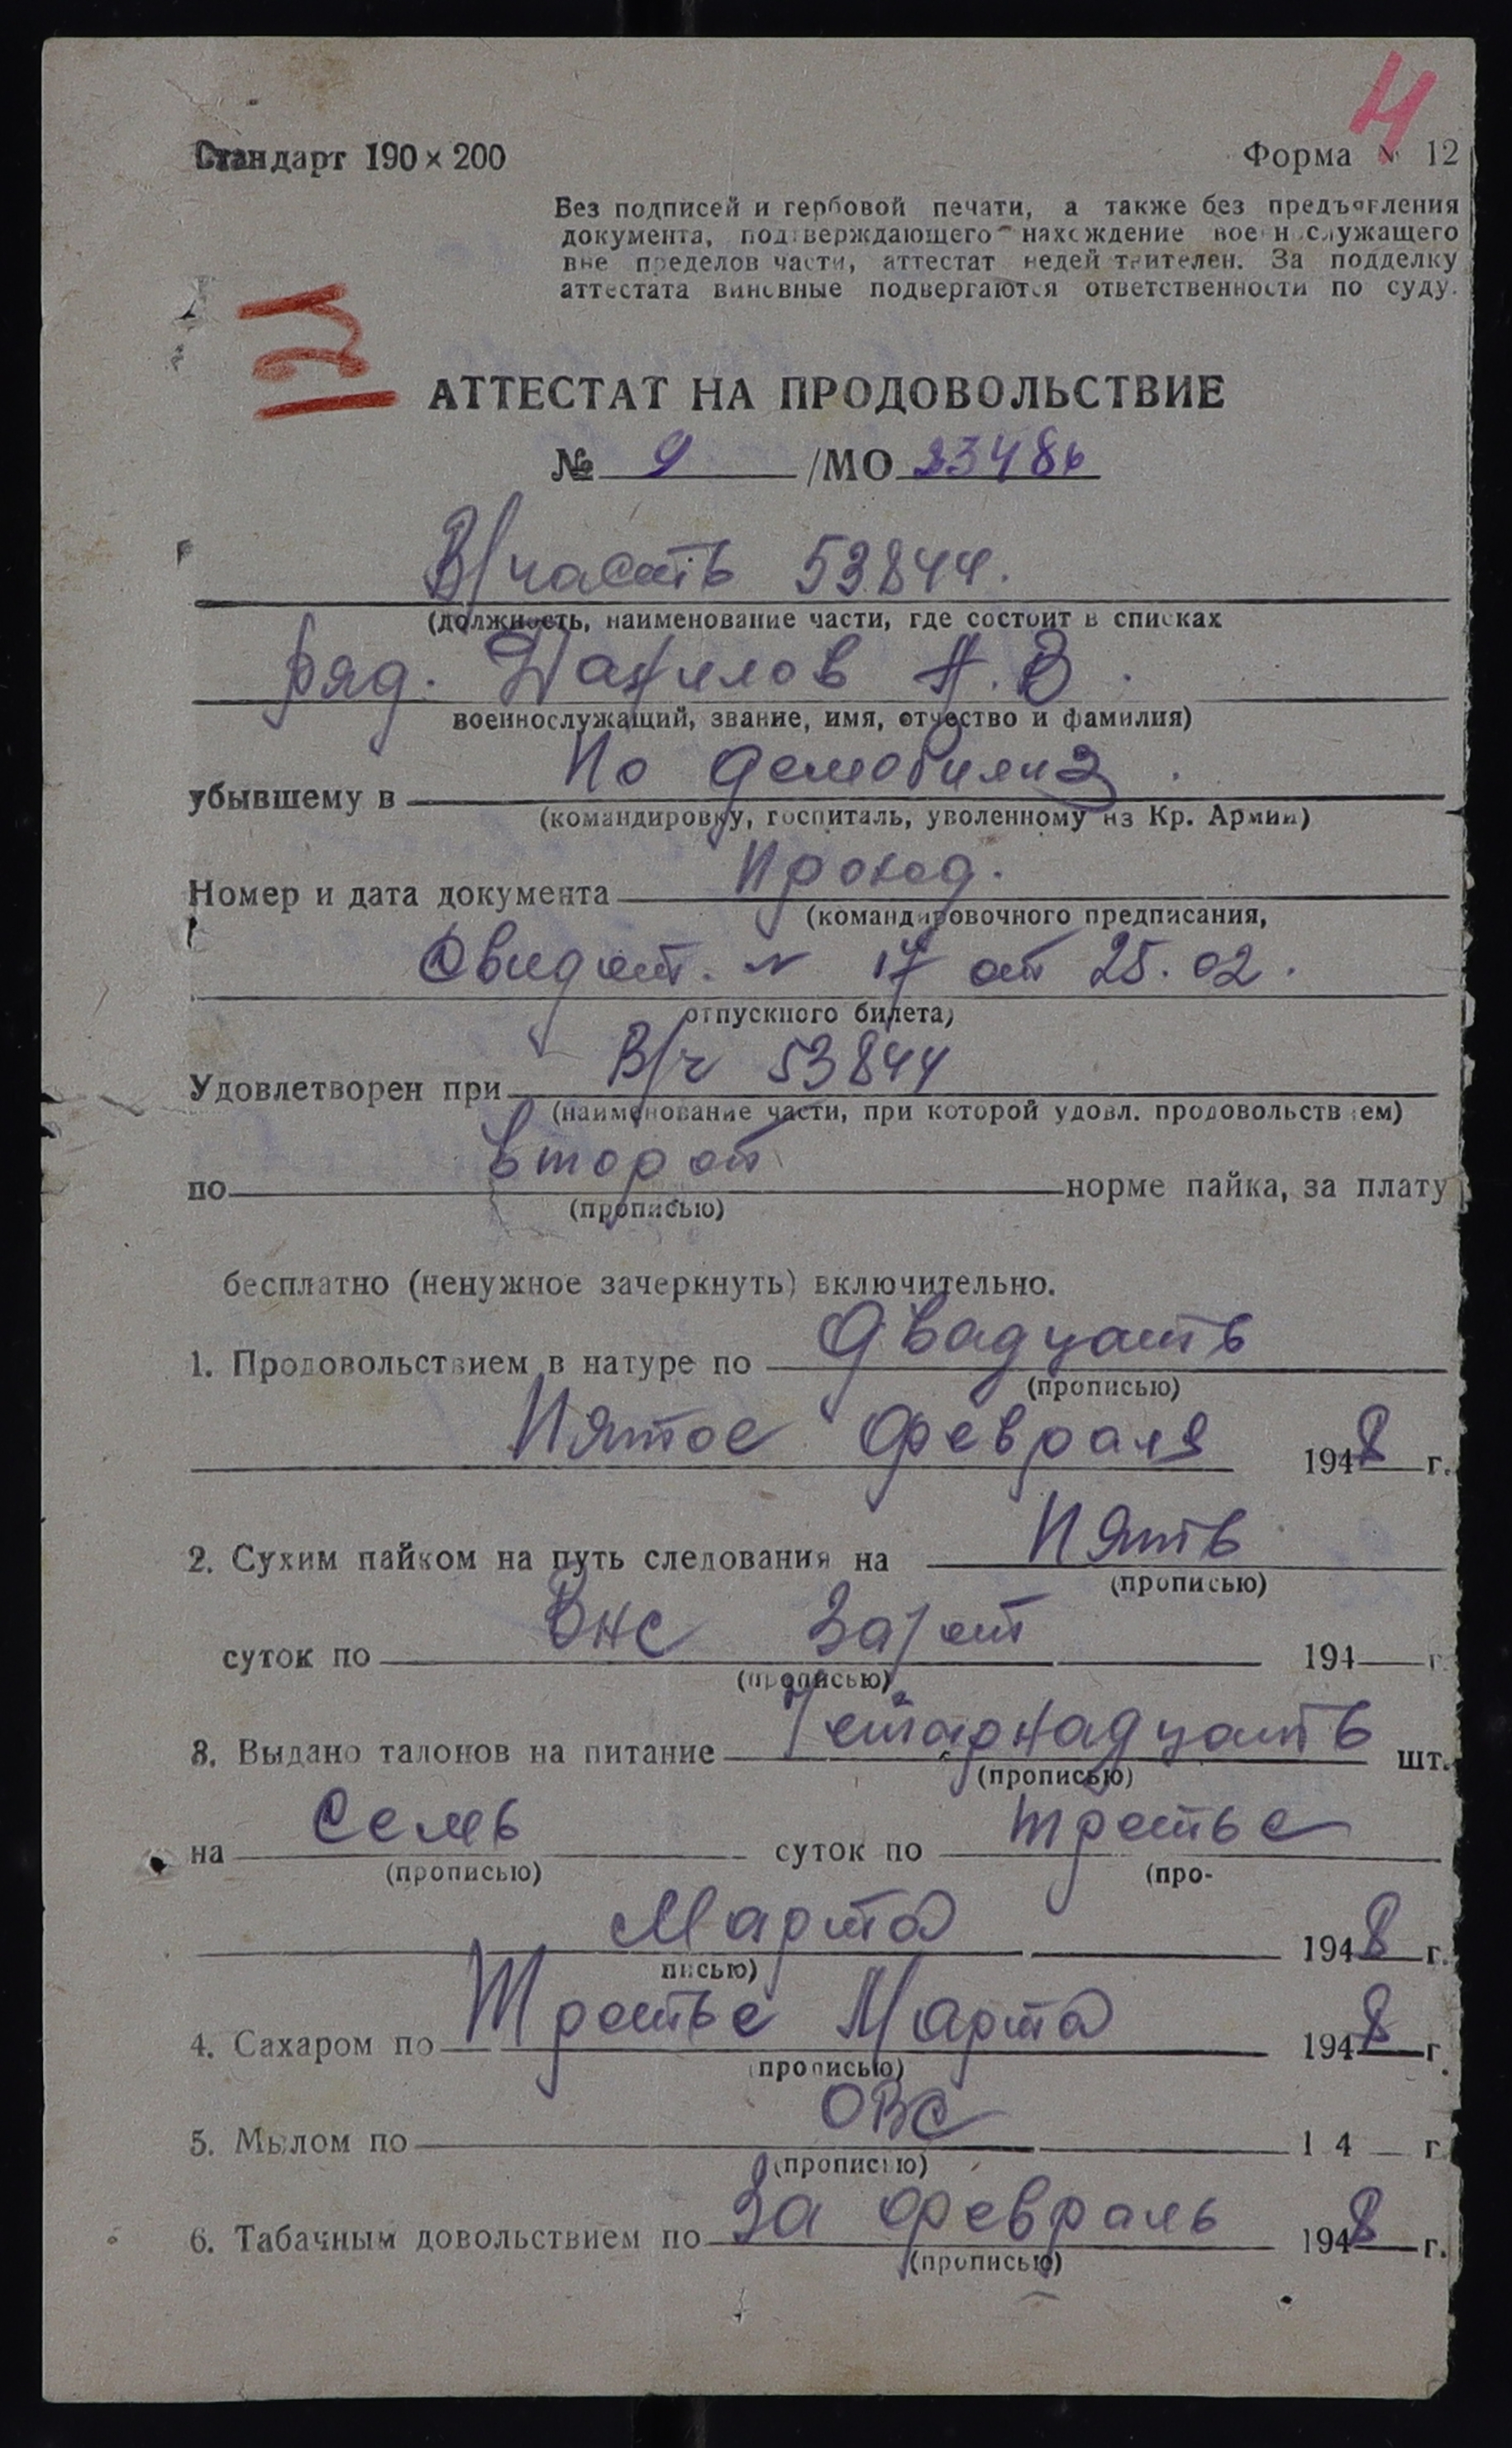 4
Стандарт 190 × 200
Форма № 12
Без подписей и гербовой печати, а также без предъявления
документа, подтверждающего нахождение военнослужащего
вне пределов части, аттестат недействителен. За подделку
аттестата виновные подвергаются ответственности по суду.
АТТЕСТАТ НА ПРОДОВОЛЬСТВИЕ
№ 9 /МО 23486
В/часть 53844.
(должность, наименование части, где состоит в списках
ряд. Данилов А. В.
военнослужащий, звание, имя, отчество и фамилия)
убывшему в По демобилиз.
(командировку, госпиталь, уволенному из Кр. Армии)
Номер и дата документа Проход.
(командировочного предписания,
Свидет. № 17 от 25.02.
отпускного билета)
Удовлетворен при В/ч 53844
(наименование части, при которой удовл. продовольствием)
по второй норме пайка, за плату
(прописью)
бесплатно (ненужное зачеркнуть) включительно.
1. Продовольствием в натуре по Двадцать
(прописью)
Пятое Февраля 1948 г.
2. Сухим пайком на путь следования на Пять
(прописью)
суток по 194 г.
(прописью)
3. Выдано талонов на питание Четырнадцать шт.
(прописью)
на Семь суток по третье
(прописью) (про-
Марта 1948 г.
писью)
4. Сахаром по Третье Марта 1948 г
(прописью)
5. Мылом по ОВС 1 4 г
(прописью)
6. Табачным довольствием по За февраль 1948 г.
(прописью)